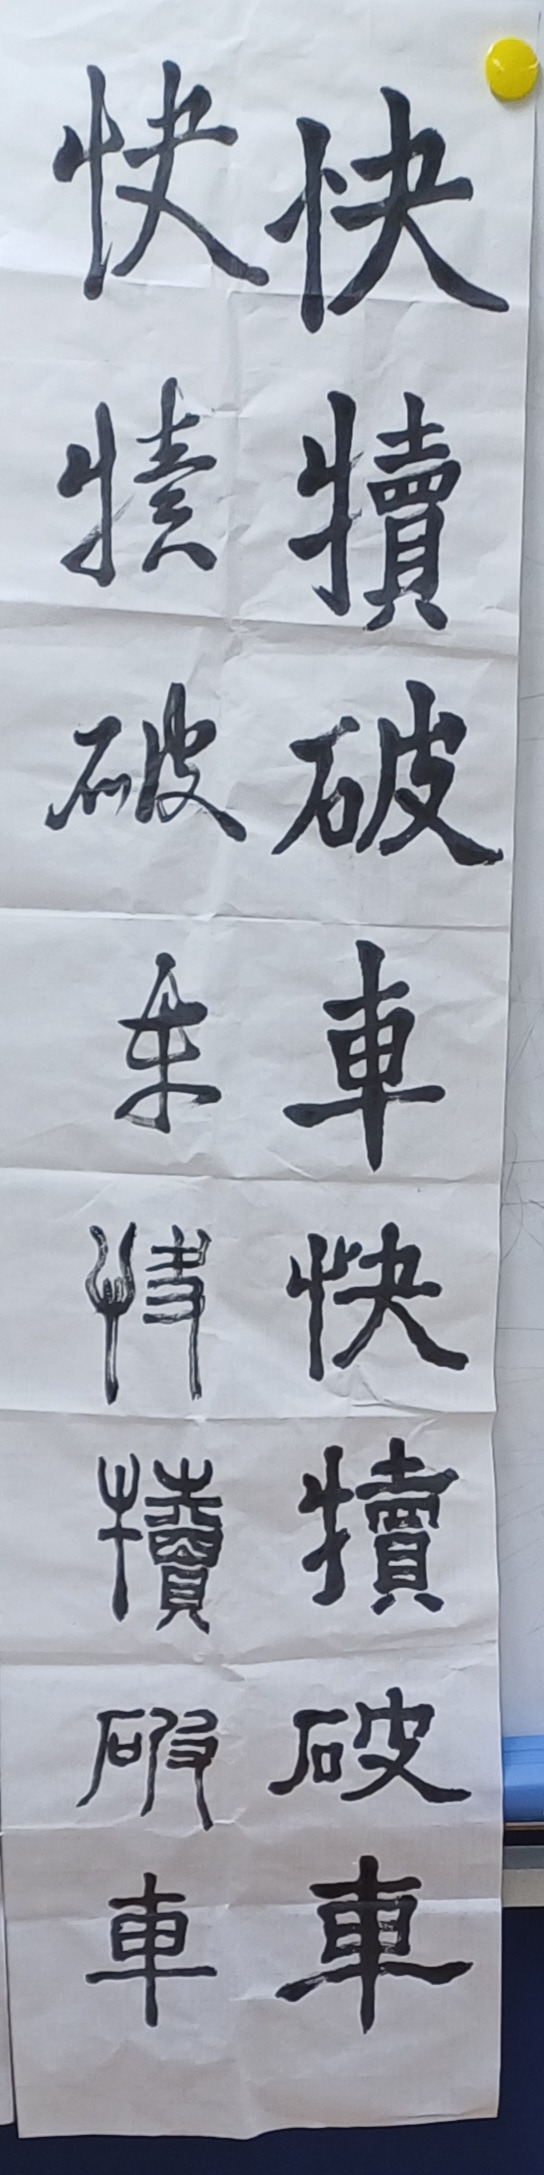 快犢破車快犢破車
快犢破車快犢破車